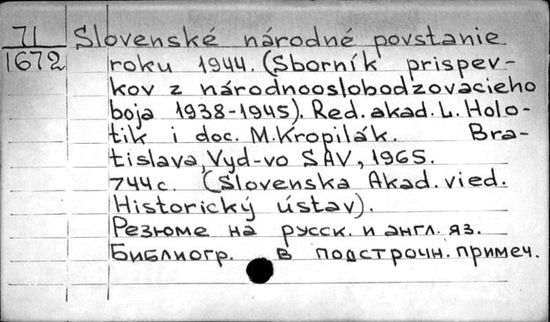 71 Slovenské národné povstanie
1672 roku 1944. (Sborník prispev-
kov z národnooslobodzovacieho
boja 1938-1945). Red. akad. L. Holo-
tik i doc. M. Kropilák. Bra-
tislava, Vyd-vo SAV, 1965.
744 c. (Slovenska Akad. vied.
Historický ústav).
Резюме на русск. и англ. яз.
Библиогр. в подстрочн. примеч.